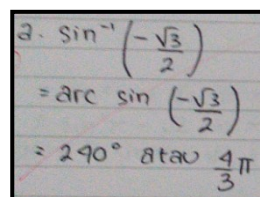 a. sin⁻¹ (-√3/2)
= arc sin (-√3/2)
= 240° atau 4/3 π